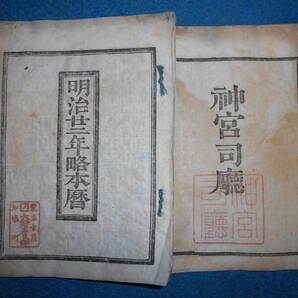 神宮司廳
神宮司廳
明治廿二年略本暦